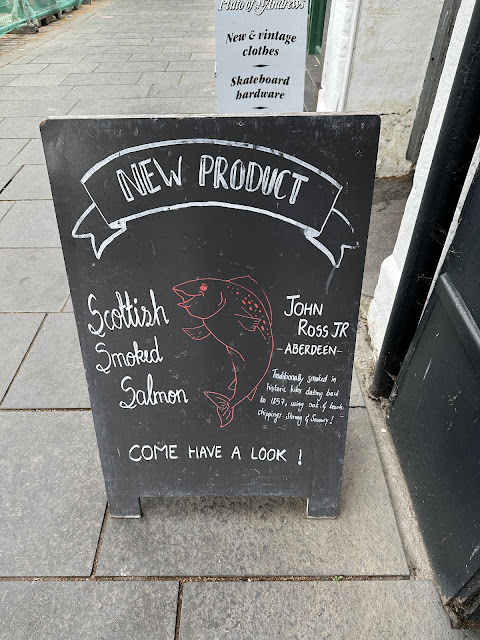 Pluto of St Andrews
New & vintage
clothes
Skateboard
hardware
NEW PRODUCT
Scottish
Smoked
Salmon
JOHN
ROSS JR
-ABERDEEN-
Traditionally smoked in
historic kilns dating back
to 1857, using oak & beech
chippings. Strong & Savoury!
COME HAVE A LOOK !